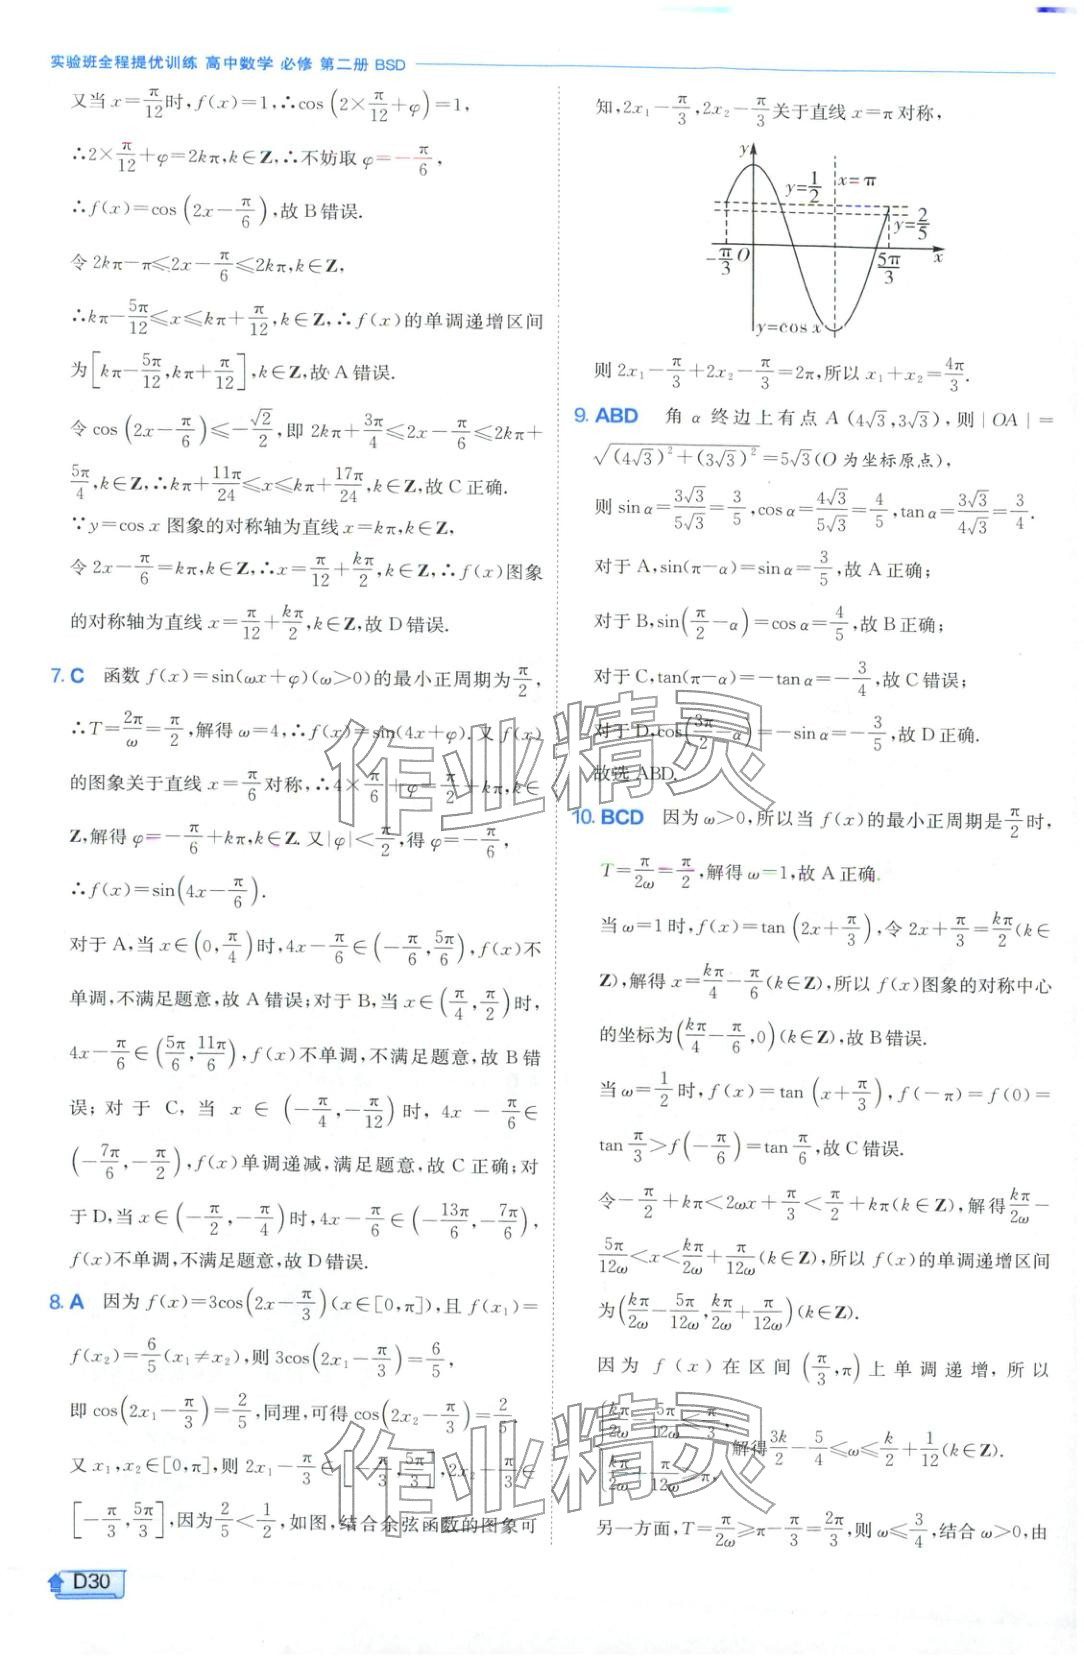 实验班全程提优训练 高中数学 必修 第二册 BSD
又当 x=π/12时,f(x)=1,∴cos(2×π/12+φ)=1,
∴2×π/12+φ=2kπ,k∈Z,∴不妨取 φ=-π/6,
∴f(x)=cos(2x-π/6),故 B错误.
令 2kπ-π≤2x-π/6≤2kπ,k∈Z,
∴kπ-5π/12≤x≤kπ+π/12,k∈Z,∴f(x)的单调递增区间
为[kπ-5π/12,kπ+π/12],k∈Z,故 A错误.
令 cos(2x-π/6)≤-√2/2,即 2kπ+3π/4≤2x-π/6≤2kπ+
5π/4,k∈Z,∴kπ+11π/24≤x≤kπ+17π/24,k∈Z,故 C正确.
∵y=cos x 图象的对称轴为直线 x=kπ,k∈Z,
令 2x-π/6=kπ,k∈Z,∴x=π/12+kπ/2,k∈Z,∴f(x)图象
的对称轴为直线 x=π/12+kπ/2,k∈Z,故 D错误.
7. C 函数 f(x)=sin(ωx+φ)(ω>0)的最小正周期为π/2,
∴T=2π/ω=π/2,解得 ω=4,∴f(x)=sin(4x+φ).又 f(x)
的图象关于直线 x=π/6对称,∴4×π/6+φ=π/2+kπ,k∈
Z,解得 φ=-π/6+kπ,k∈Z.又|φ|<π/2,得 φ=-π/6,
∴f(x)=sin(4x-π/6).
对于 A,当 x∈(0,π/4)时,4x-π/6∈(-π/6,5π/6),f(x)不
单调,不满足题意,故 A错误;对于 B,当 x∈(π/4,π/2)时,
4x-π/6∈(5π/6,11π/6),f(x)不单调,不满足题意,故 B错
误;对于 C,当 x∈(-π/4,-π/12)时,4x-π/6∈
(-7π/6,-π/2),f(x)单调递减,满足题意,故 C正确;对
于 D,当 x∈(-π/2,-π/4)时,4x-π/6∈(-13π/6,-7π/6),
f(x)不单调,不满足题意,故 D错误.
8. A 因为 f(x)=3cos(2x-π/3)(x∈[0,π]),且 f(x₁)=
f(x₂)=6/5(x₁≠x₂),则 3cos(2x₁-π/3)=6/5,
即 cos(2x₁-π/3)=2/5,同理,可得 cos(2x₂-π/3)=2/5.
又 x₁,x₂∈[0,π],则 2x₁-π/3∈[-π/3,5π/3],2x₂-π/3∈
[-π/3,5π/3],因为2/5<1/2,如图,结合余弦函数的图象可
D30
知,2x₁-π/3,2x₂-π/3关于直线 x=π 对称,
y
y=1/2
x=π
y=2/5
-π/3
O
5π/3
x
y=cos x
则 2x₁-π/3+2x₂-π/3=2π,所以 x₁+x₂=4π/3.
9. ABD 角 α 终边上有点 A(4√3,3√3),则|OA|=
√((4√3)²+(3√3)²)=5√3(O 为坐标原点),
则 sin α=3√3/5√3=3/5,cos α=4√3/5√3=4/5,tan α=3√3/4√3=3/4.
对于 A,sin(π-α)=sin α=3/5,故 A正确;
对于 B,sin(π/2-α)=cos α=4/5,故 B正确;
对于 C,tan(π-α)=-tan α=-3/4,故 C错误;
对于 D,cos(3π/2-α)=-sin α=-3/5,故 D正确.
故选 ABD.
10. BCD 因为 ω>0,所以当 f(x)的最小正周期是π/2时,
T=π/2ω=π/2,解得 ω=1,故 A正确.
当 ω=1时,f(x)=tan(2x+π/3),令 2x+π/3=kπ/2(k∈
Z),解得 x=kπ/4-π/6(k∈Z),所以 f(x)图象的对称中心
的坐标为(kπ/4-π/6,0)(k∈Z),故 B错误.
当 ω=1/2时,f(x)=tan(x+π/3),f(-π)=f(0)=
tan π/3>f(-π/6)=tan π/6,故 C错误.
令-π/2+kπ<2ωx+π/3<π/2+kπ(k∈Z),解得kπ/2ω-
5π/12ω<x<kπ/2ω+π/12ω(k∈Z),所以 f(x)的单调递增区间
为(kπ/2ω-5π/12ω,kπ/2ω+π/12ω)(k∈Z).
因为 f(x)在区间(π/3,π)上单调递增,所以
{kπ/2ω-5π/12ω≤π/3,
kπ/2ω+π/12ω≥π, 解得3k/2-5/4≤ω≤k/2+1/12(k∈Z).
另一方面,T=π/2ω≥π-π/3=2π/3,则 ω≤3/4,结合 ω>0,由
作业精灵
作业精灵